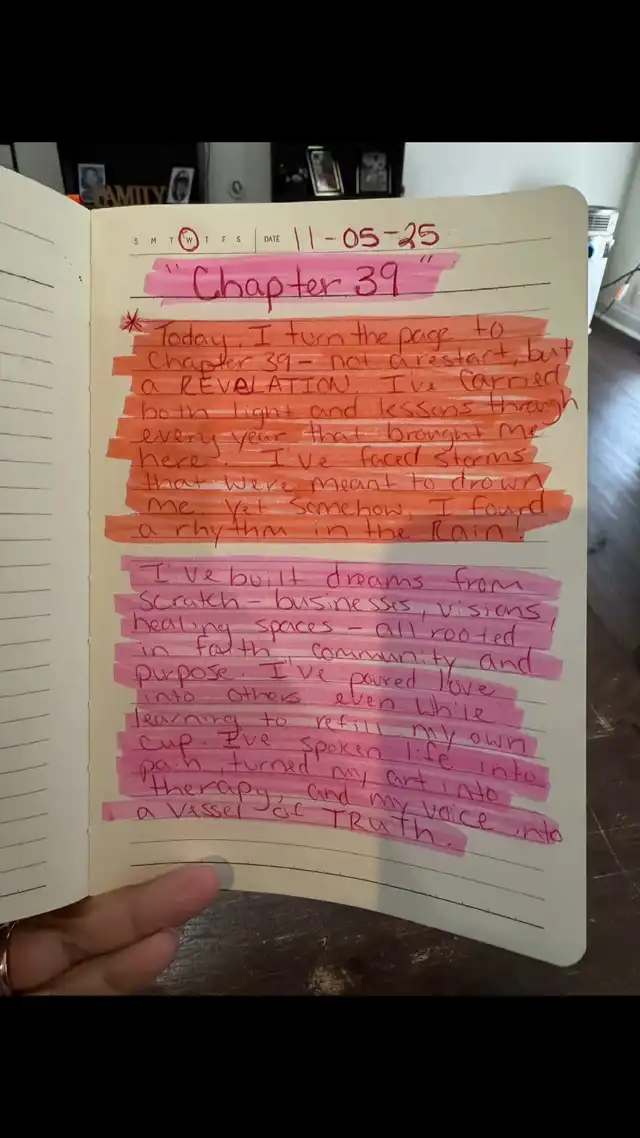 FAMILY
S M T W T F S DATE 11-05-25
"Chapter 39"
* Today, I turn the page to
Chapter 39 - not a restart, but
a REVELATION. I've carried
both light and lessons through
every year that brought me
here. I've faced storms
that were meant to drown
me yet somehow, I found
a rhythm in the Rain!
I've built dreams from
scratch - businesses, visions,
healing spaces - all rooted
in faith, community and
purpose. I've poured love
into others even while
learning to refill my own
cup. I've spoken life into
pain, turned my art into
therapy, and my voice into
a Vessel of TRuTH.